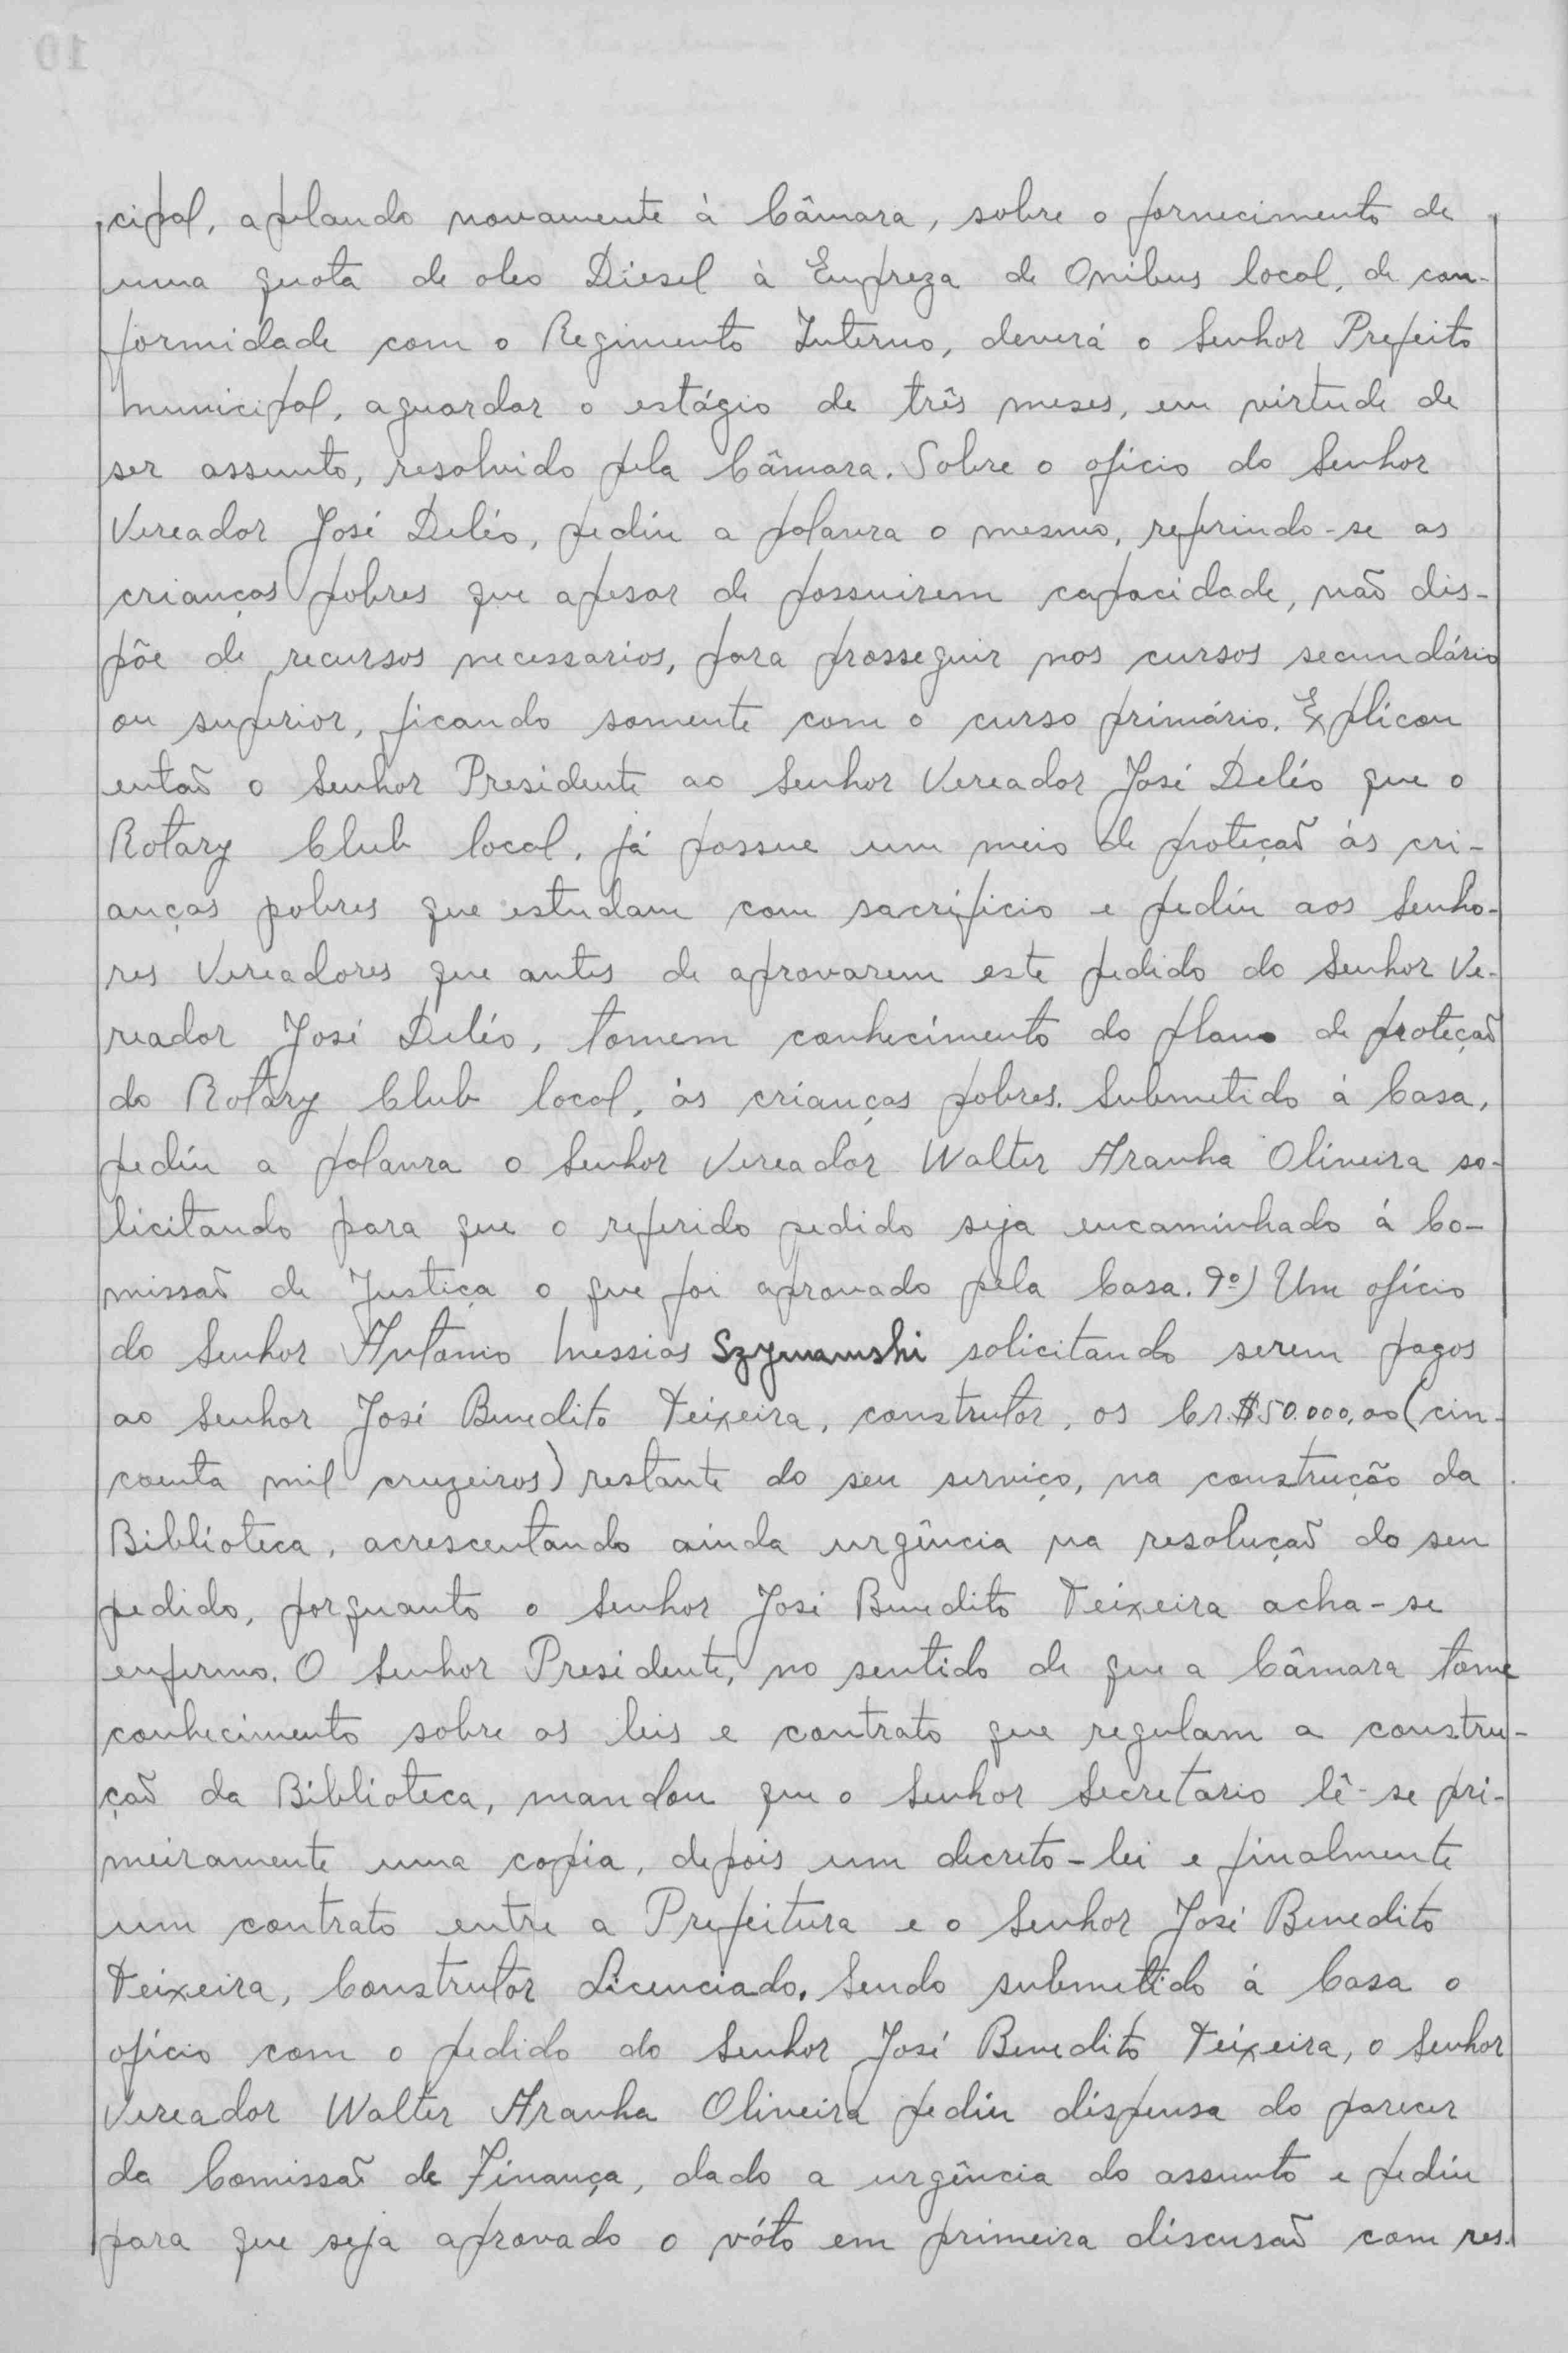 cipal, apelando novamente à Câmara, sobre o fornecimento de
uma quota de oleo Diesel à Empreza de Onibus local, de con-
formidade com o Regimento Interno, deverá o Senhor Prefeito
Municipal, aguardar o estágio de três meses, em virtude de
ser assunto, resolvido pela Câmara. Sobre o oficio do Senhor
Vereador José Deléo, pediu a palavra o mesmo, referindo-se as
crianças pobres que apesar de possuirem capacidade, não dis-
põe de recursos necessarios, para prosseguir nos cursos secundário
ou superior, ficando somente com o curso primário. Explicou
então o Senhor Presidente ao Senhor Vereador José Deléo que o
Rotary Club local, já possue um meio de proteção ás cri-
anças pobres que estudam com sacrificio e pediu aos Senho-
res Vereadores que antes de aprovarem este pedido do Senhor Ve-
reador José Deléo, tomem conhecimento do plano de proteção
do Rotary Club local, às crianças pobres. Submetido á Casa,
pediu a palavra o Senhor Vereador Walter Aranha Oliveira so-
licitando para que o referido pedido seja encaminhado á Co-
missão de Justiça o que foi aprovado pela Casa. 9º) Um ofício
do Senhor Antonio Messias Szymanski solicitando serem pagos
ao Senhor José Benedito Teixeira, construtor, os Cr.$50.000,00 (cin-
coenta mil cruzeiros) restante do seu serviço, na construção da
Biblioteca, acrescentando ainda urgência na resolução do seu
pedido, porquanto o Senhor José Benedito Teixeira acha-se
enfermo. O Senhor Presidente, no sentido de que a Câmara tome
conhecimento sobre as leis e contrato que regulam a constru-
ção da Biblioteca, mandou que o Senhor Secretario lê-se pri-
meiramente uma copia, depois um decreto-lei e finalmente
um contrato entre a Prefeitura e o Senhor José Benedito
Teixeira, Construtor Licenciado. Sendo submetido á Casa o
ofício com o pedido do Senhor José Benedito Teixeira, o Senhor
Vereador Walter Aranha Oliveira pediu dispensa do parecer
da Comissão de Finança, dado a urgência do assunto e pediu
para que seja aprovado o vóto em primeira discusão com res.